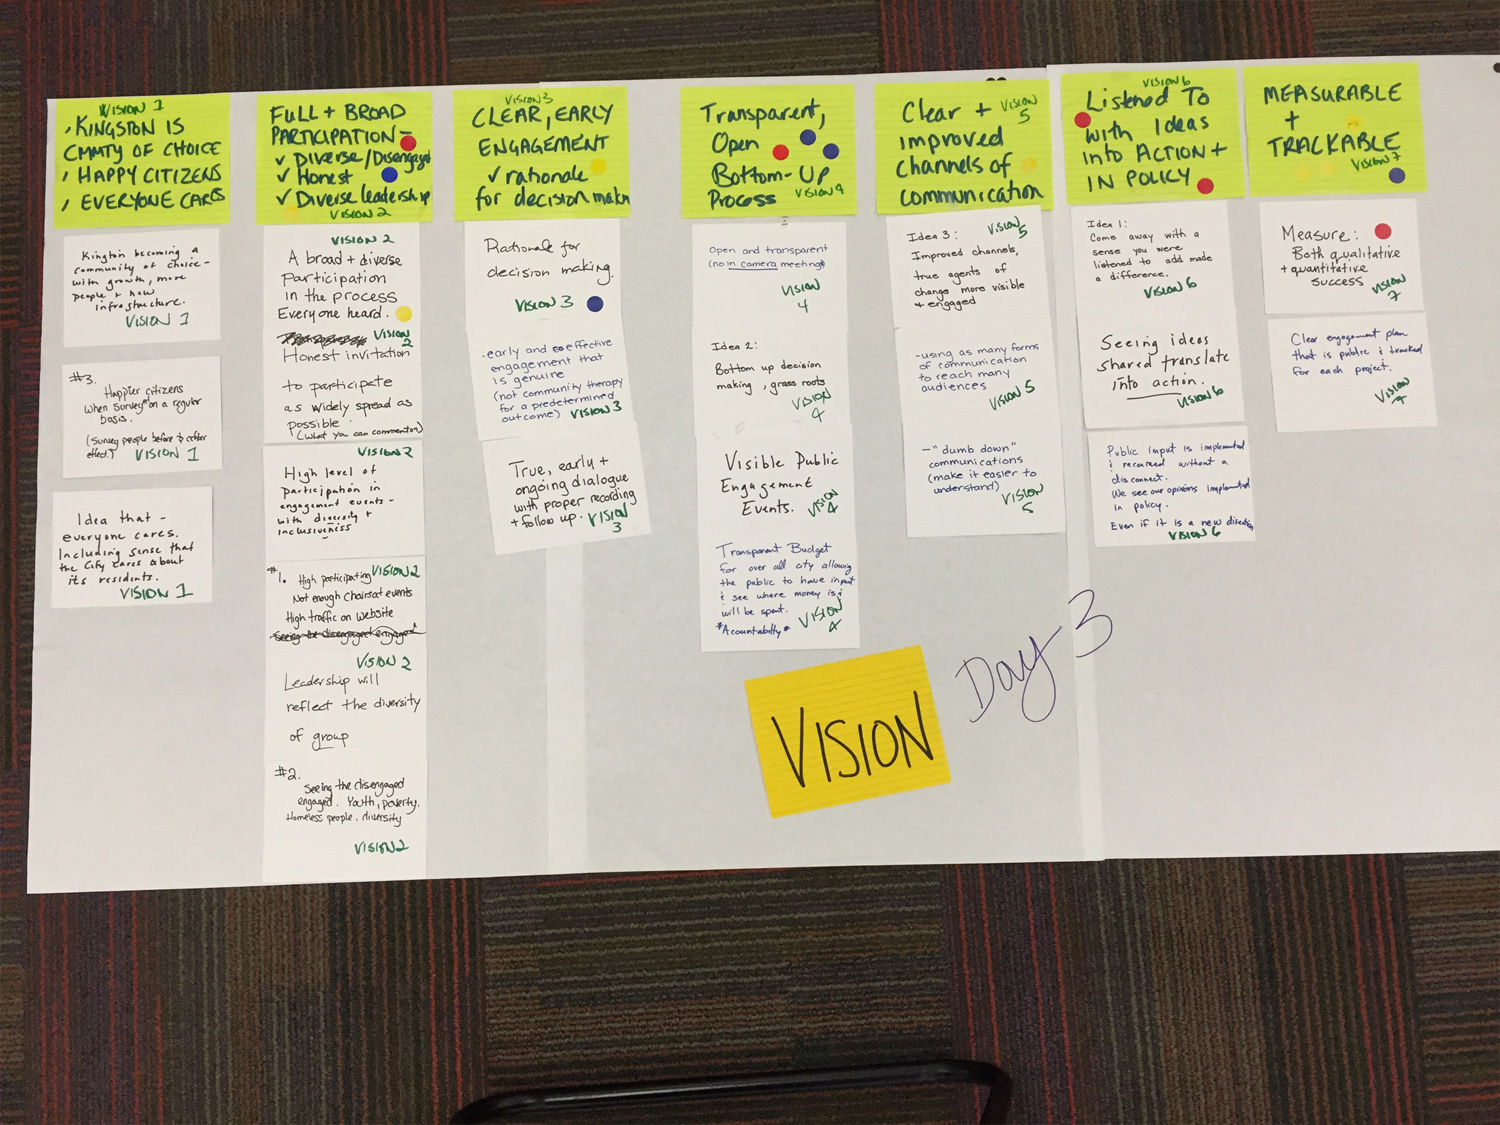 VISION 1
, KINGSTON IS
CMMTY OF CHOICE
, HAPPY CITIZENS
, EVERYONE CARES
Kingston becoming a
community of choice -
with growth, more
people + new
infrastructure.
VISION 1
#3.
Happier citizens
when surveyed on a regular
basis.
(Survey people before & after
effect.) VISION 1
Idea that -
everyone cares.
Including sense that
the City cares about
its residents.
VISION 1
FULL + BROAD
PARTICIPATION -
✓ Diverse/Disengaged
✓ Honest
✓ Diverse leadership
VISION 2
VISION 2
A broad + diverse
participation
in the process
Everyone heard.
VISION 2
Honest invitation
to participate
as widely spread as
possible
(what you can comment on)
VISION 2
High level of
participation in
engagement events -
with diversity +
inclusiveness
#1. High participating VISION 2
Not enough chairs at events
High traffic on website
Seeing the disengaged engaged
VISION 2
Leadership will
reflect the diversity
of group
#2.
Seeing the disengaged
engaged. Youth, poverty,
Homeless people, diversity
VISION 2
VISION 3
CLEAR, EARLY
ENGAGEMENT
✓ rationale
for decision makn
Rationale for
decision making.
VISION 3
- early and effective
engagement that
is genuine
(not community therapy
for a predetermined
outcome) VISION 3
True, early +
ongoing dialogue
with proper recording
+ follow up. VISION
3
Transparent,
Open
Bottom-Up
Process VISION 4
Open and transparent
(no in camera meetings)
VISION
4
Idea 2:
Bottom up decision
making, grass roots
VISION
4
Visible Public
Engagement
Events. VISION
4
Transparent Budget
for over all city allowing
the public to have input
& see where money is &
will be spent.
*Acountability* VISION
4
Clear + VISION
5
improved
channels of
communication
Idea 3: VISION
5
Improved channels,
true agents of
change more visible
+ engaged
- using as many forms
of communication
to reach many
audiences
VISION 5
- "dumb down"
communications
(make it easier to
understand)
VISION
5
VISION 6
Listened To
with Ideas
into ACTION +
IN POLICY
Idea 1:
Come away with a
sense you were
listened to add made
a difference.
VISION 6
Seeing ideas
shared translate
into action.
VISION 6
Public input is implemented
& recorded without a
disconnect.
We see our opinions implemented
in policy.
Even if it is a new direction
VISION 6
MEASURABLE
+
TRACKABLE
VISION 7
Measure:
Both qualitative
+ quantitative
success VISION
7
Clear engagement plan
that is public & tracked
for each project.
VISION
7
VISION
Day 3